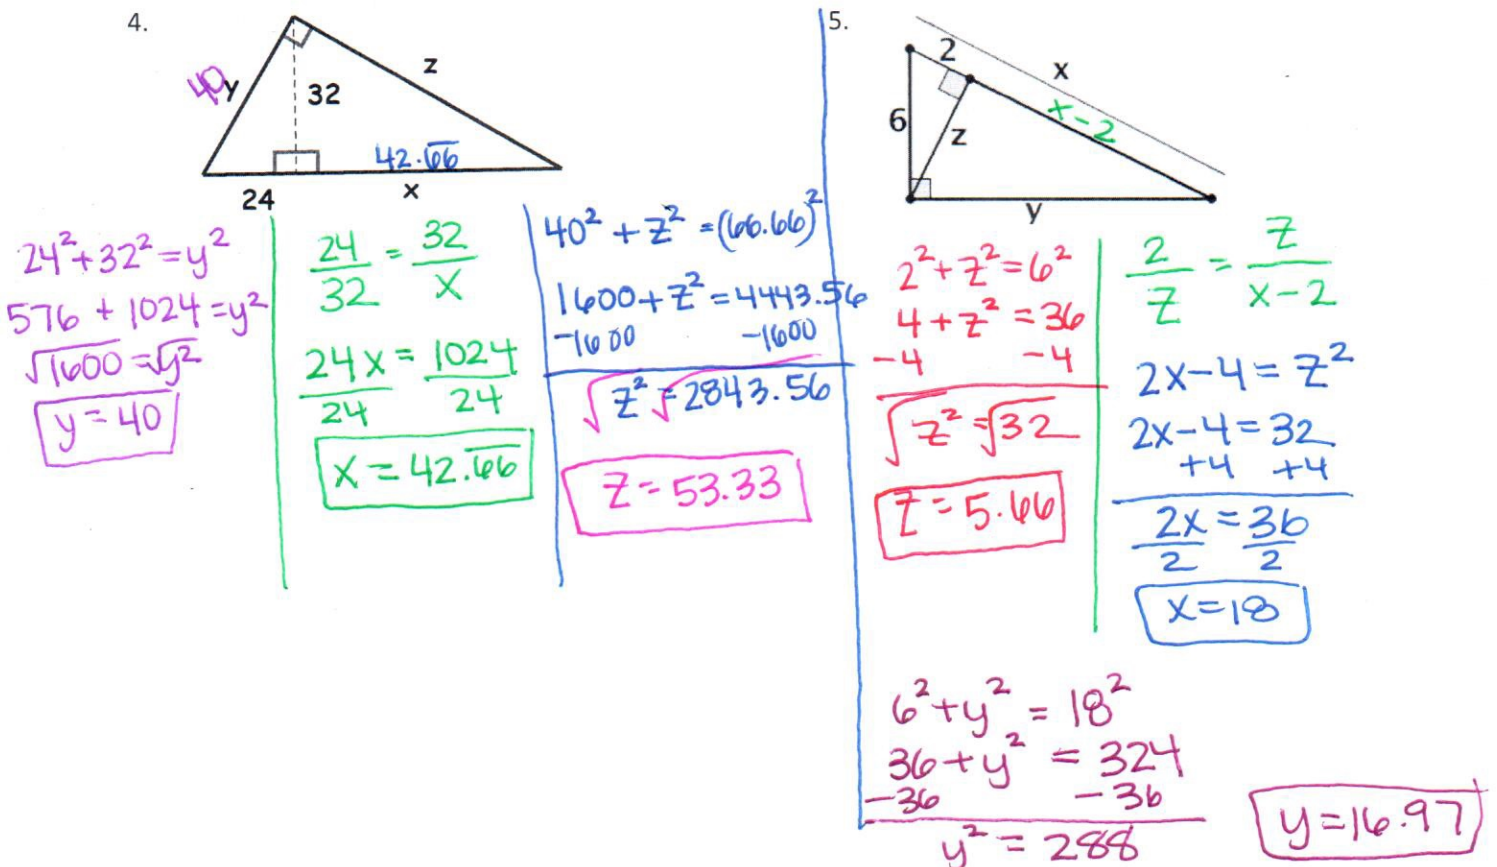 4.
40
y
z
32
42.6̅6̅
24
x
24² + 32² = y²
576 + 1024 = y²
√1600 = √y²
y = 40
24/32 = 32/x
24x/24 = 1024/24
x = 42.6̅6̅
40² + z² = (66.66)²
1600 + z² = 4443.56
-1600 -1600
√z² = √2843.56
z = 53.33
5.
2
x
x-2
6
z
y
2² + z² = 6²
4 + z² = 36
-4 -4
√z² = √32
z = 5.66
2/z = z/x-2
2x-4 = z²
2x-4 = 32
+4 +4
2x/2 = 36/2
x = 18
6² + y² = 18²
36 + y² = 324
-36 -36
y² = 288
y = 16.97